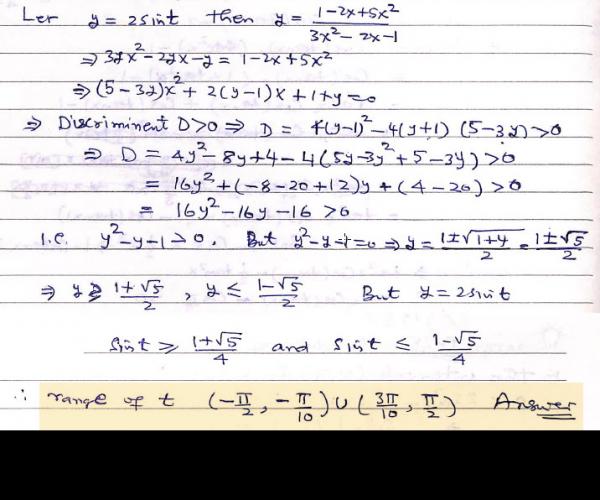 Let y = 2sint then y = (1-2x+5x²)/(3x²-2x-1)
⇒ 3yx²-2yx-y = 1-2x+5x²
⇒ (5-3y)x²+ 2(y-1)x+1+y=0
⇒ Discriminent D>0 ⇒ D = 4(y-1)²-4(y+1) (5-3y)>0
⇒ D = 4y²-8y+4-4(5y-3y²+5-3y)>0
= 16y²+(-8-20+12)y+(4-20)>0
= 16y²-16y-16 >0
i.e. y²-y-1>0. But y²-y-1=0 ⇒ y = (1±√(1+4))/2 = (1±√5)/2
⇒ y ≥ (1+√5)/2 , y ≤ (1-√5)/2 But y = 2sint
sint ≥ (1+√5)/4 and sint ≤ (1-√5)/4
∴ range of t (-π/2, -π/10)∪(3π/10, π/2) Answer